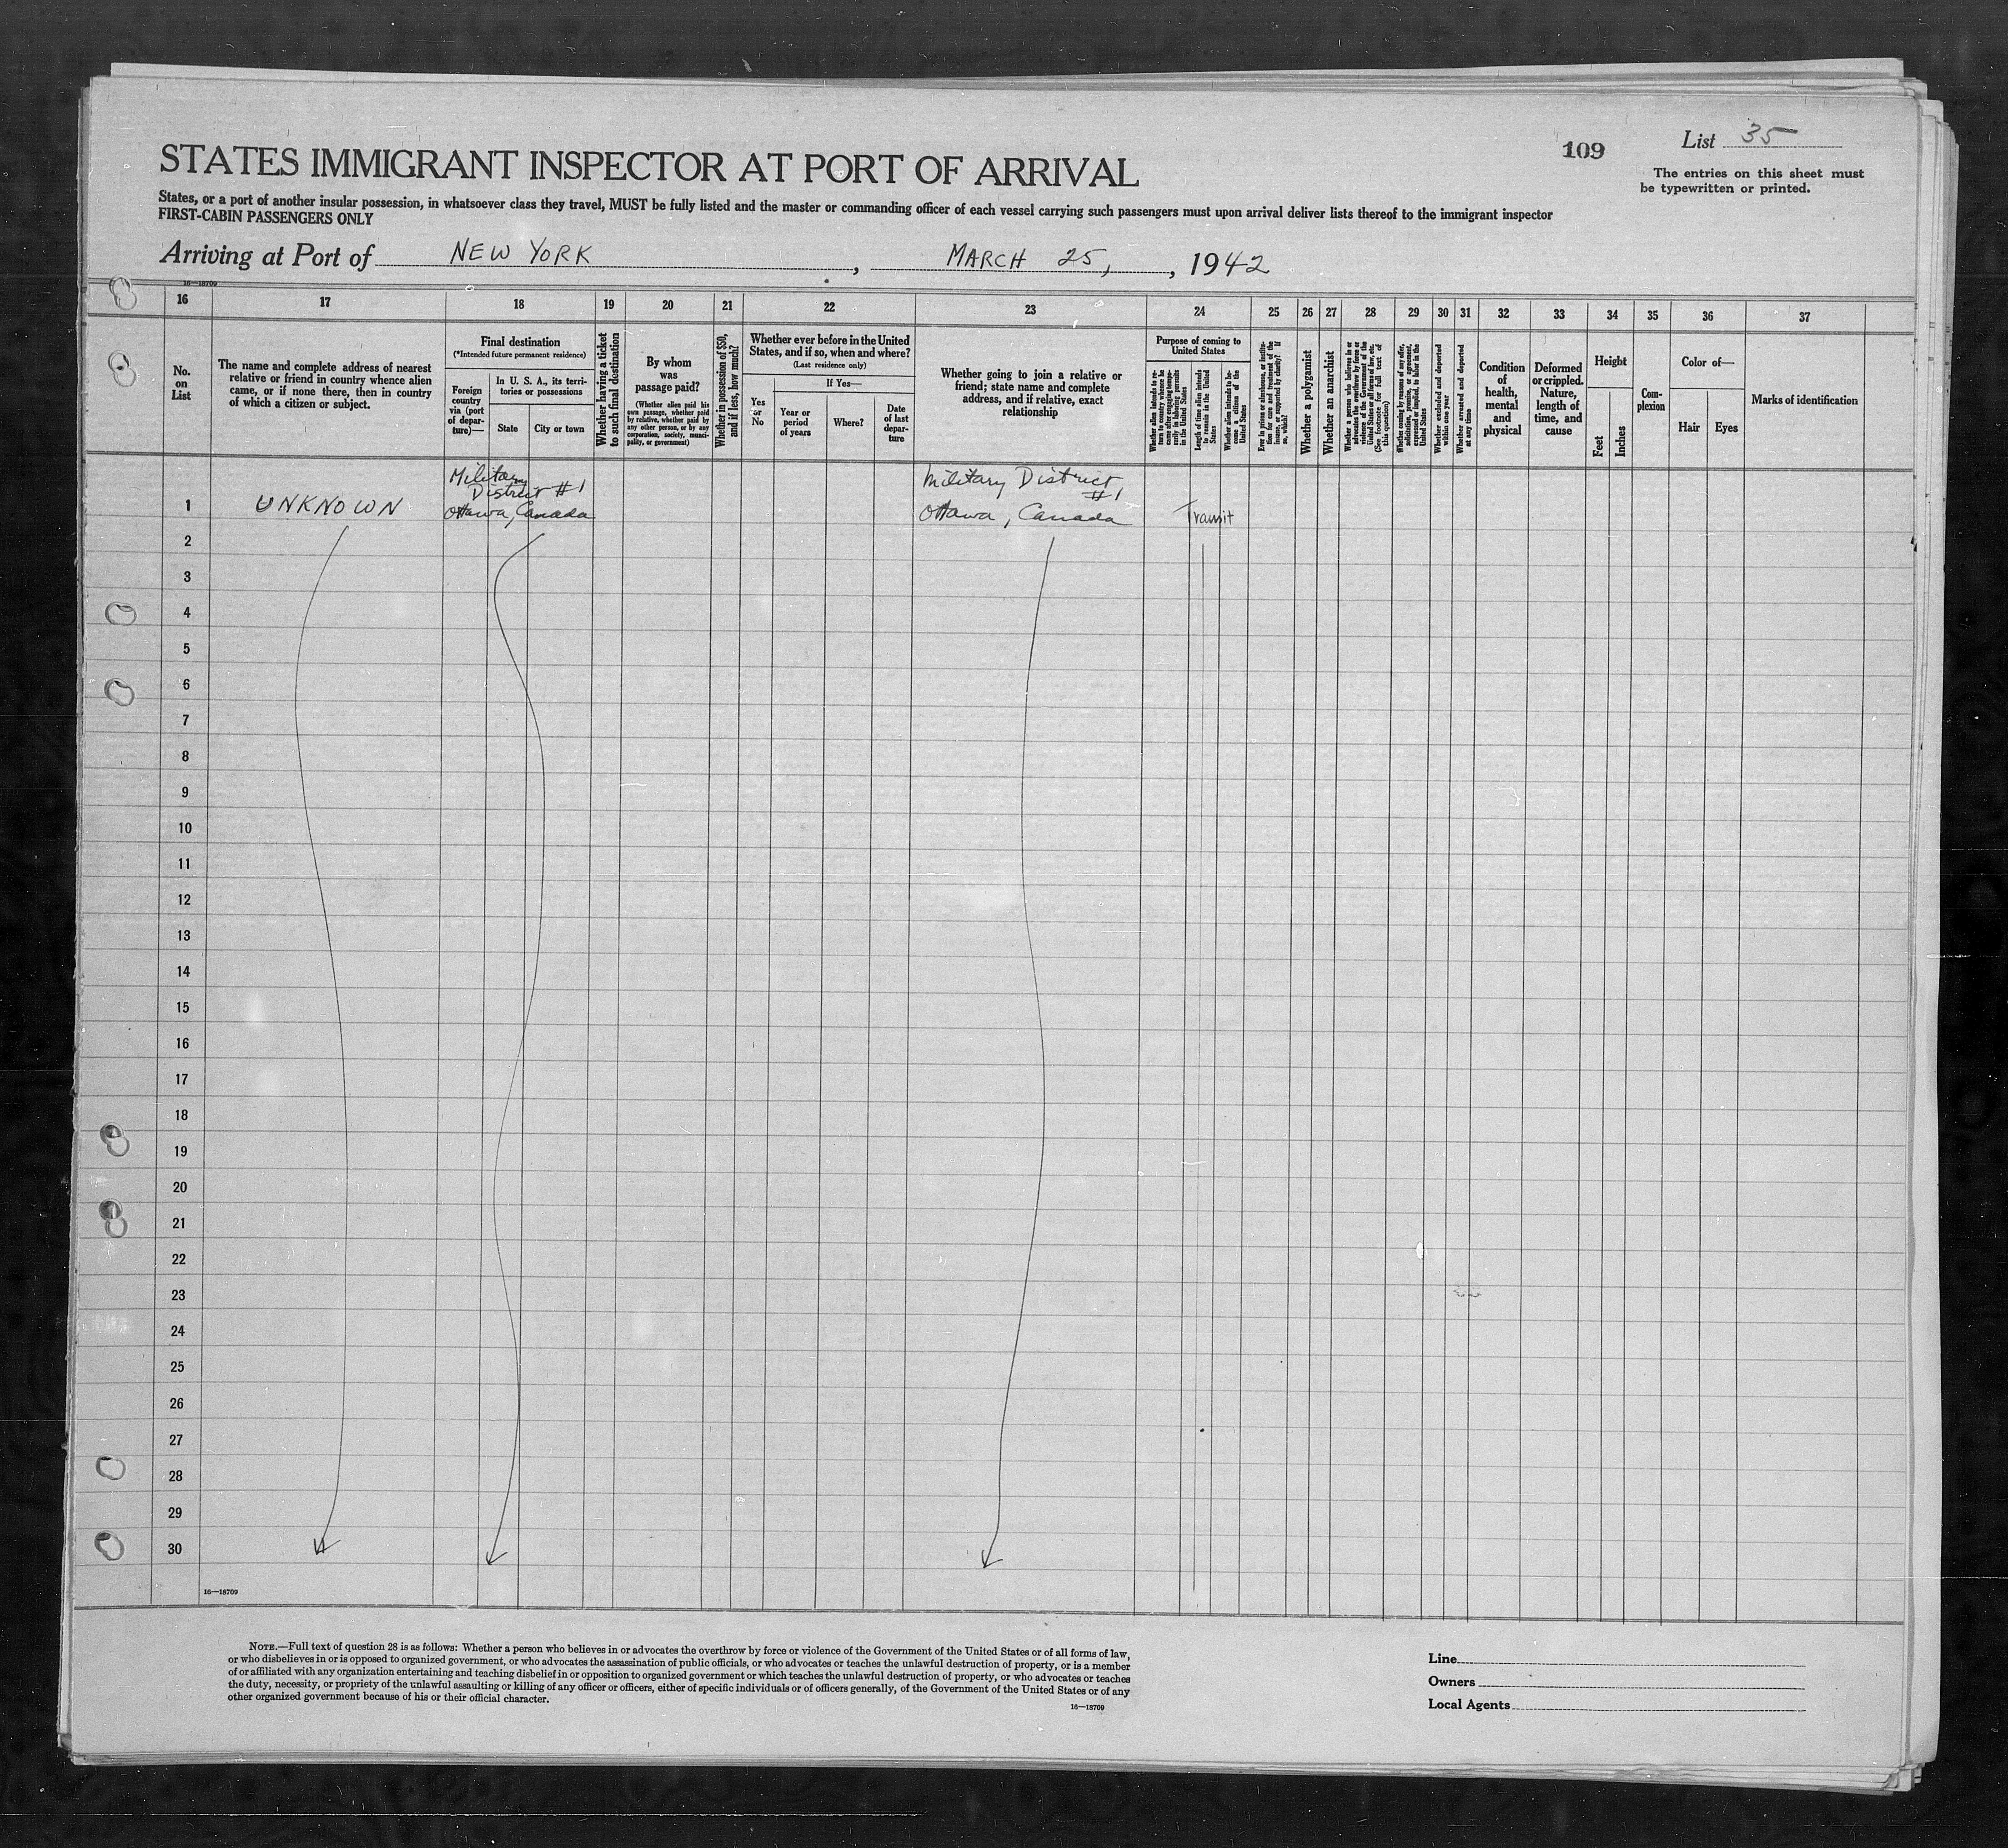 STATES IMMIGRANT INSPECTOR AT PORT OF ARRIVAL
109
List 35
The entries on this sheet must
be typewritten or printed.
States, or a port of another insular possession, in whatsoever class they travel, MUST be fully listed and the master or commanding officer of each vessel carrying such passengers must upon arrival deliver lists thereof to the immigrant inspector
FIRST-CABIN PASSENGERS ONLY
Arriving at Port of NEW YORK, MARCH 25, , 1942
16—18709
16 17 18 19 20 21 22 23 24 25 26 27 28 29 30 31 32 33 34 35 36 37
No.
on
List
The name and complete address of nearest
relative or friend in country whence alien
came, or if none there, then in country
of which a citizen or subject.
Final destination
(*Intended future permanent residence)
Foreign
country
via (port
of depar-
ture)—
In U. S. A., its terri-
tories or possessions
State
City or town
Whether having a ticket
to such final destination
By whom
was
passage paid?
(Whether alien paid his
own passage, whether paid
by relative, whether paid by
any other person, or by any
corporation, society, munici-
pality, or government)
Whether in possession of $50,
and if less, how much?
Whether ever before in the United
States, and if so, when and where?
(Last residence only)
Yes
or
No
If Yes—
Year or
period
of years
Where?
Date
of last
depar-
ture
Whether going to join a relative or
friend; state name and complete
address, and if relative, exact
relationship
Purpose of coming to
United States
Whether alien intends to re-
turn to country whence he
came after engaging tempo-
rarily in laboring pursuits
in the United States
Length of time alien intends
to remain in the United
States
Whether alien intends to be-
come a citizen of the
United States
Ever in prison or almshouse, or institu-
tion for care and treatment of the
insane, or supported by charity? If
so, which?
Whether a polygamist
Whether an anarchist
Whether a person who believes in or
advocates the overthrow by force or
violence of the Government of the
United States or all forms of law, etc.
(See footnote for full text of
this question)
Whether coming by reason of any offer,
solicitation, promise, or agreement,
expressed or implied, to labor in the
United States
Whether excluded and deported
within one year
Whether arrested and deported
at any time
Condition
of
health,
mental
and
physical
Deformed
or crippled.
Nature,
length of
time, and
cause
Height
Feet
Inches
Com-
plexion
Color of—
Hair
Eyes
Marks of identification
1 UNKNOWN
Military
District #1
Ottawa, Canada
Military District
#1
Ottawa, Canada
Transit
2
3
4
5
6
7
8
9
10
11
12
13
14
15
16
17
18
19
20
21
22
23
24
25
26
27
28
29
30
16—18709
NOTE.—Full text of question 28 is as follows: Whether a person who believes in or advocates the overthrow by force or violence of the Government of the United States or of all forms of law,
or who disbelieves in or is opposed to organized government, or who advocates the assassination of public officials, or who advocates or teaches the unlawful destruction of property, or is a member
of or affiliated with any organization entertaining and teaching disbelief in or opposition to organized government or which teaches the unlawful destruction of property, or who advocates or teaches
the duty, necessity, or propriety of the unlawful assaulting or killing of any officer or officers, either of specific individuals or of officers generally, of the Government of the United States or of any
other organized government because of his or their official character.
16—18709
Line
Owners
Local Agents